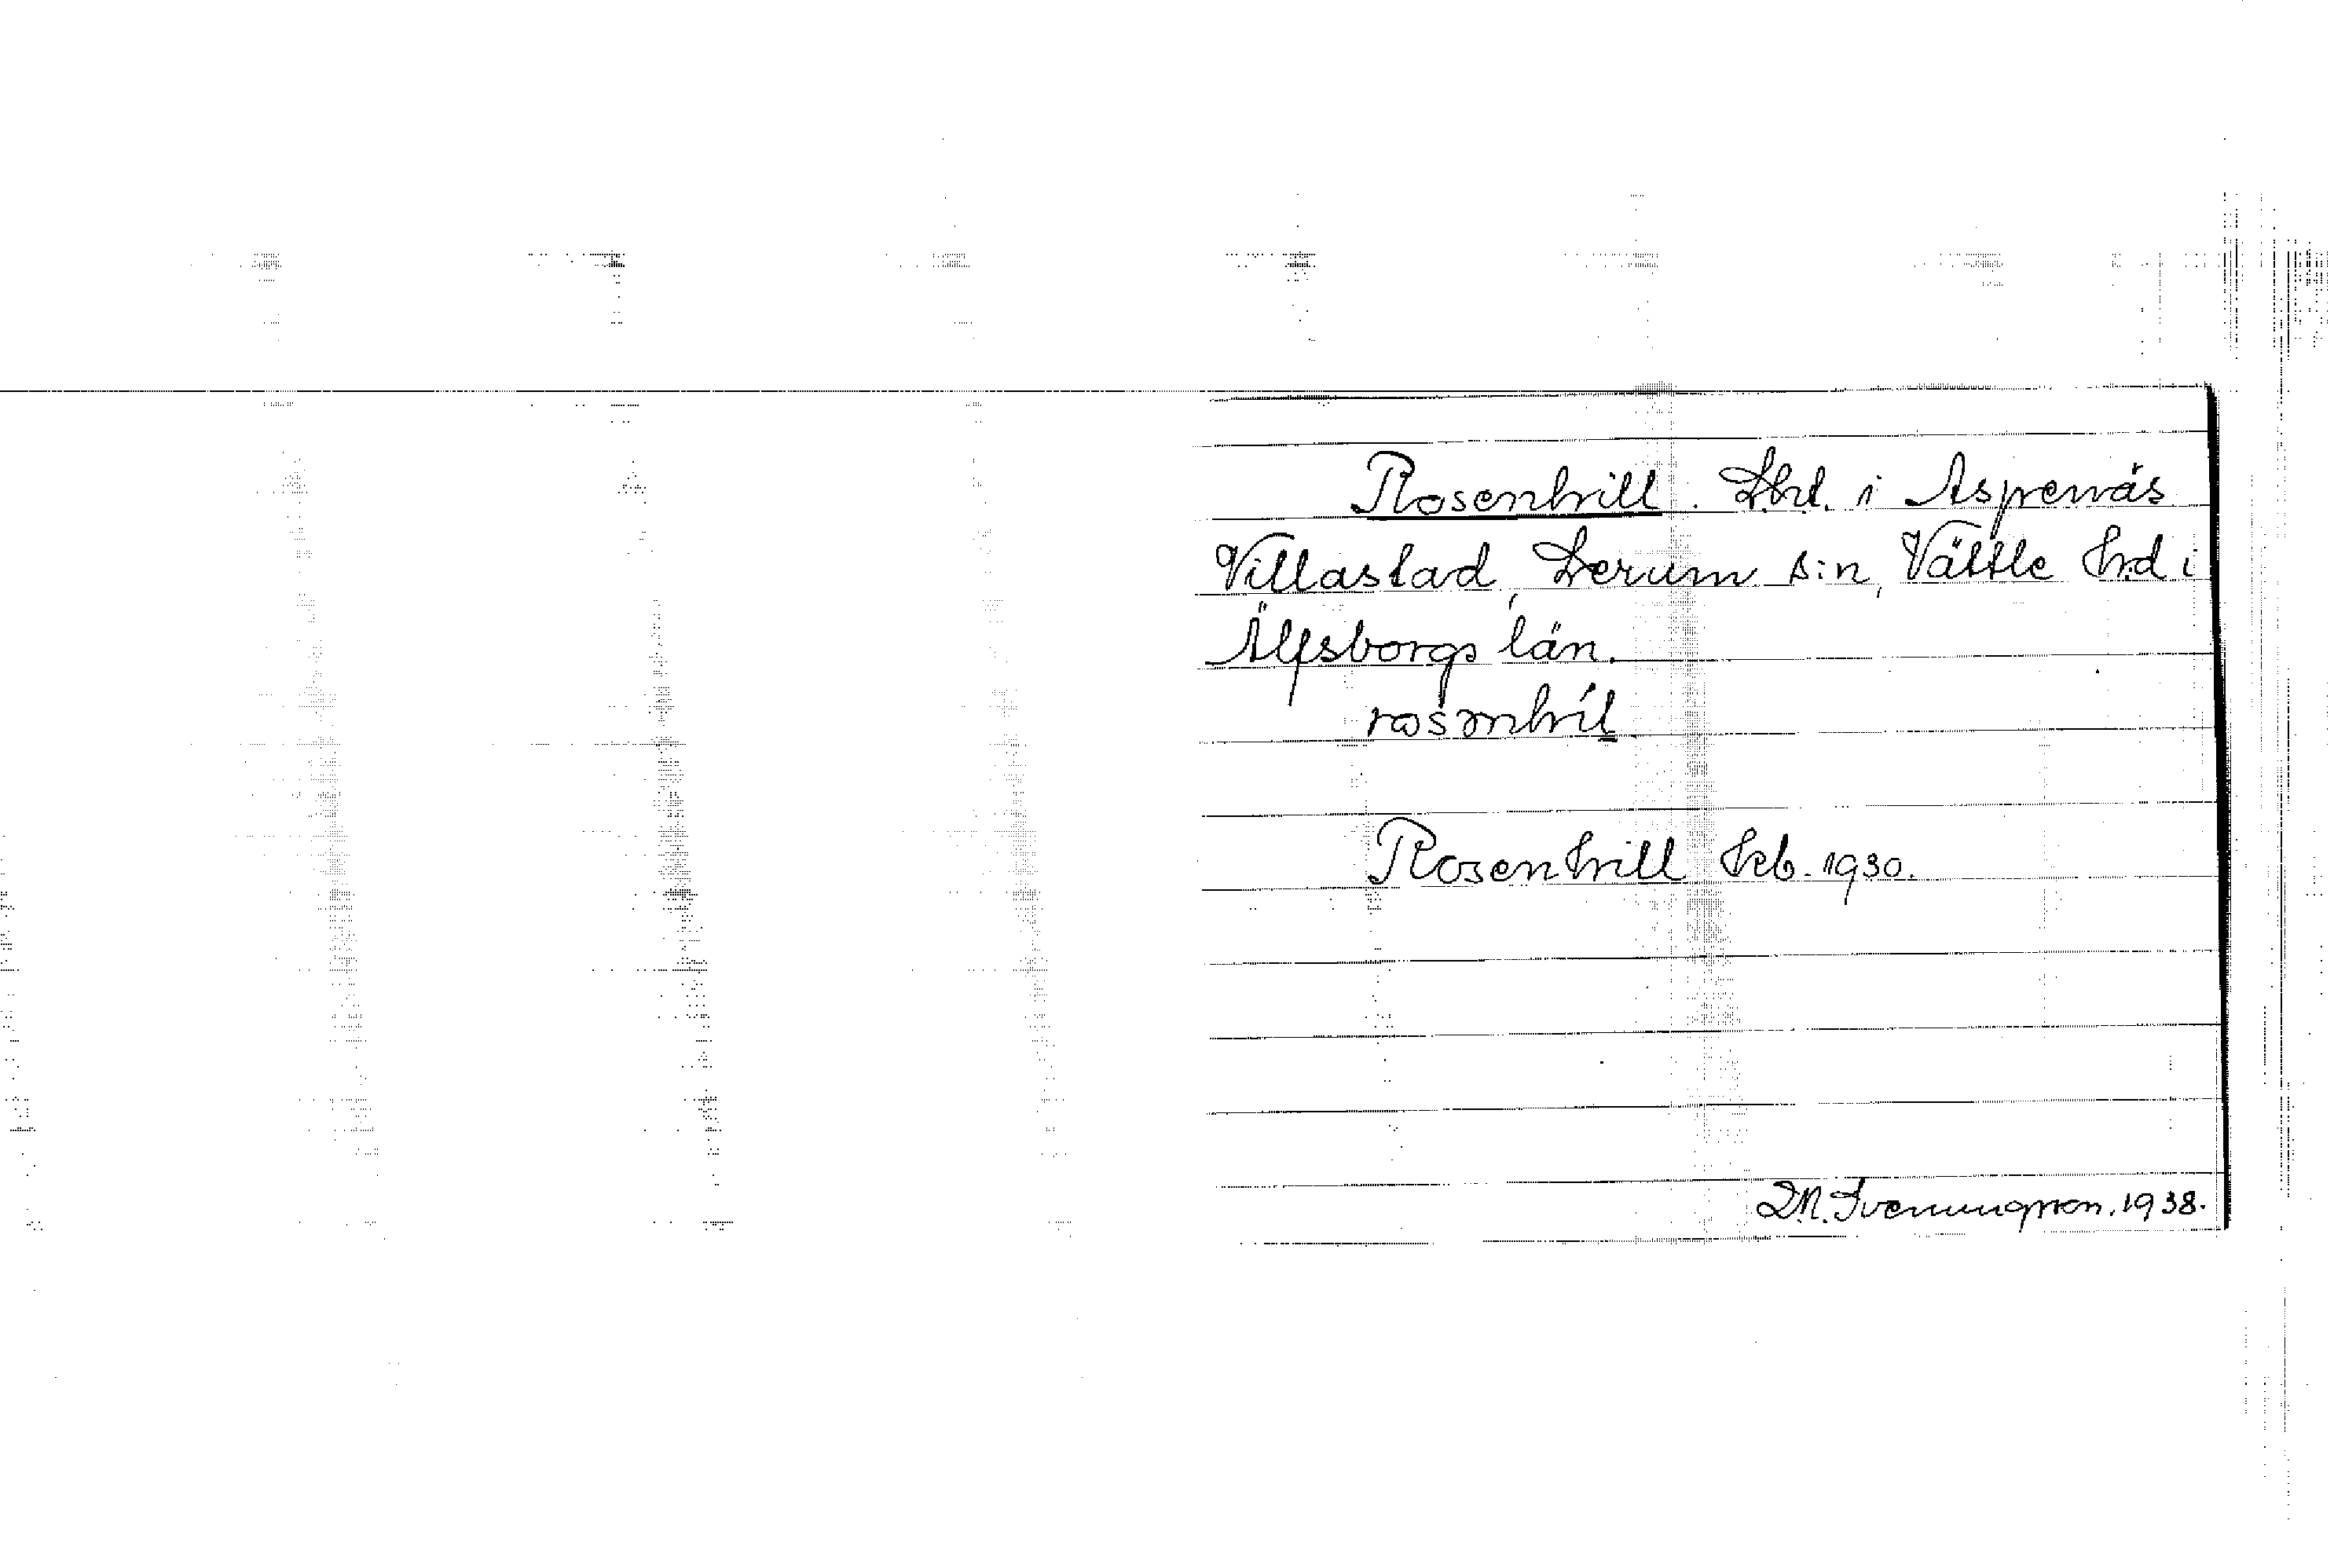 Rosenhill. Lht. i Aspenäs
Villastad, Lerum s:n, Vättle hd i
Älfsborgs län.
Rosenhill Jeb. 1930.
D.N. Svenungsson. 1938.